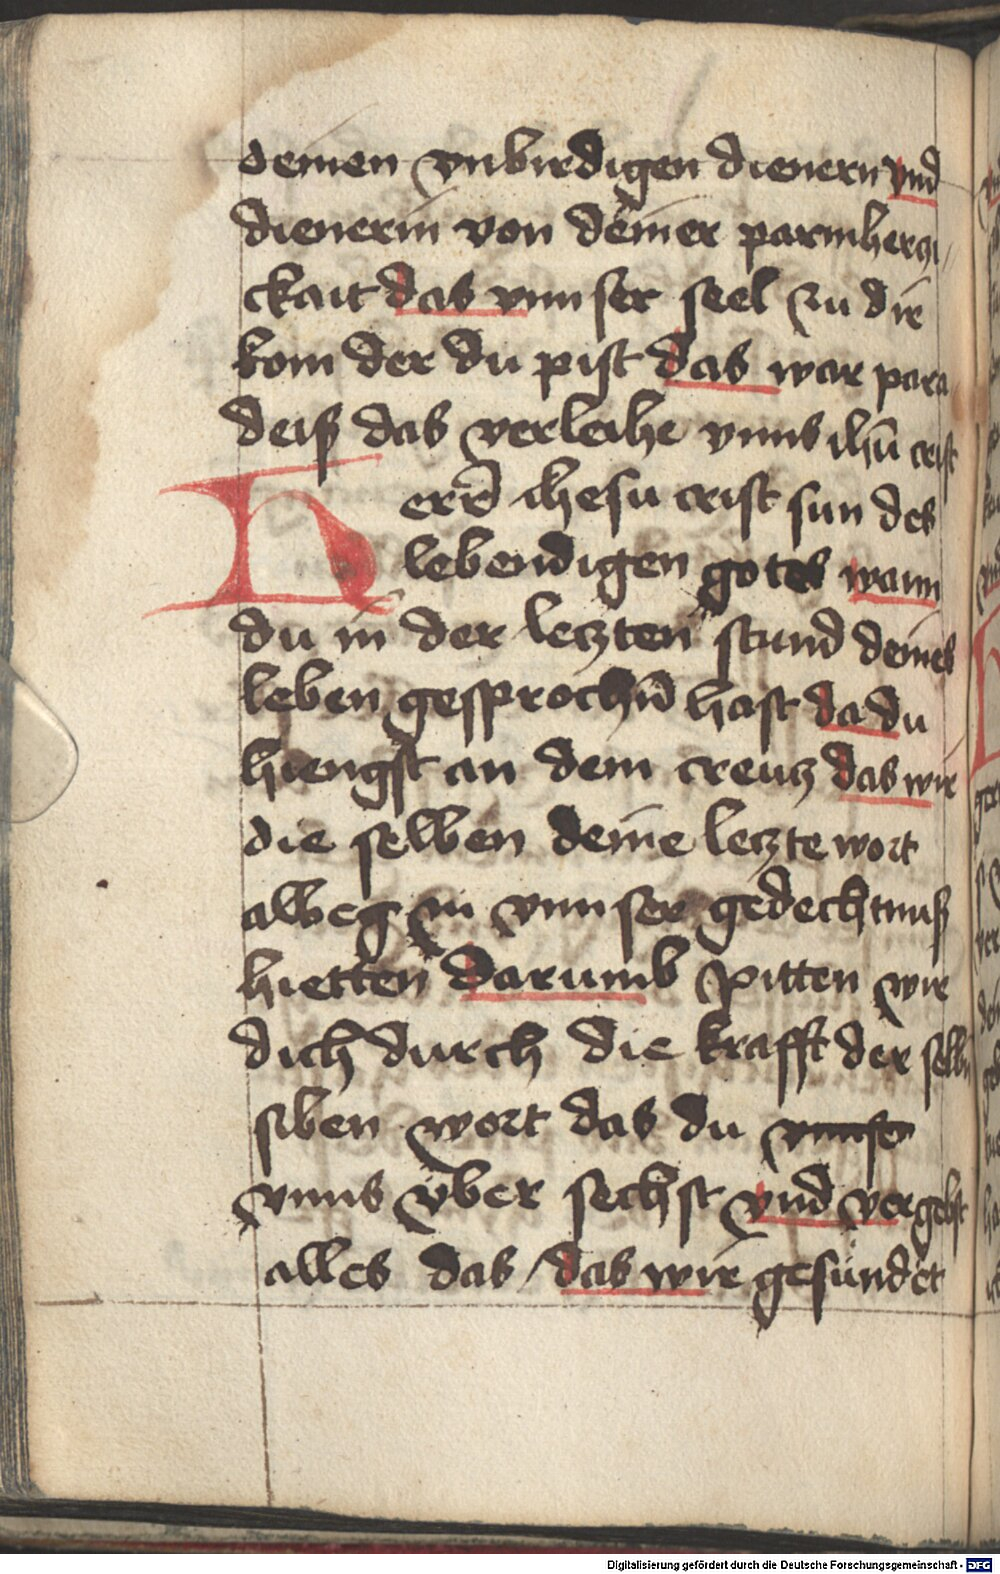 deinen vnbirdigen dienern vnd
dienerin von deiner parmherczi
ckait das vnnser seel zu dir
kom der du pist das war para
deiß das verleihe vnns ihū crist
Herr̄ ihesu crist sun des
lebendigen gotes wann
du in der leczten stund deines
leben gesprochn̄ hast da du
hiengst an dem creucz das wir
die selben deine leczte wort
albeg in vnnser gedechtnuß
hietten darumb pitten wir
dich durch die krafft der selbn̄
siben wort das du vnnser
vnns vber sechst vnd vergebst
alles das / das wir gesündet
Digitalisierung gefördert durch die Deutsche Forschungsgemeinschaft - DFG